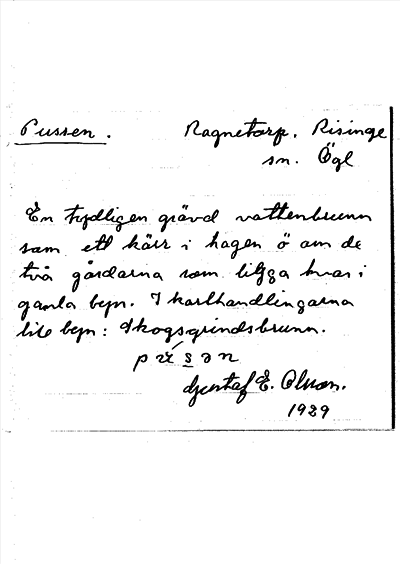 Pussen.
Ragnetorp, Risinge
sn. Ögl
En tydligen grävd vattenbrunn
som ett kärr i hagen ö om de
två gårdarna som ligga kvar i
gamla byn. I karthandlingarna
lite byn: Skogsgrindsbrunn.
Gustaf E. Olsson.
1929